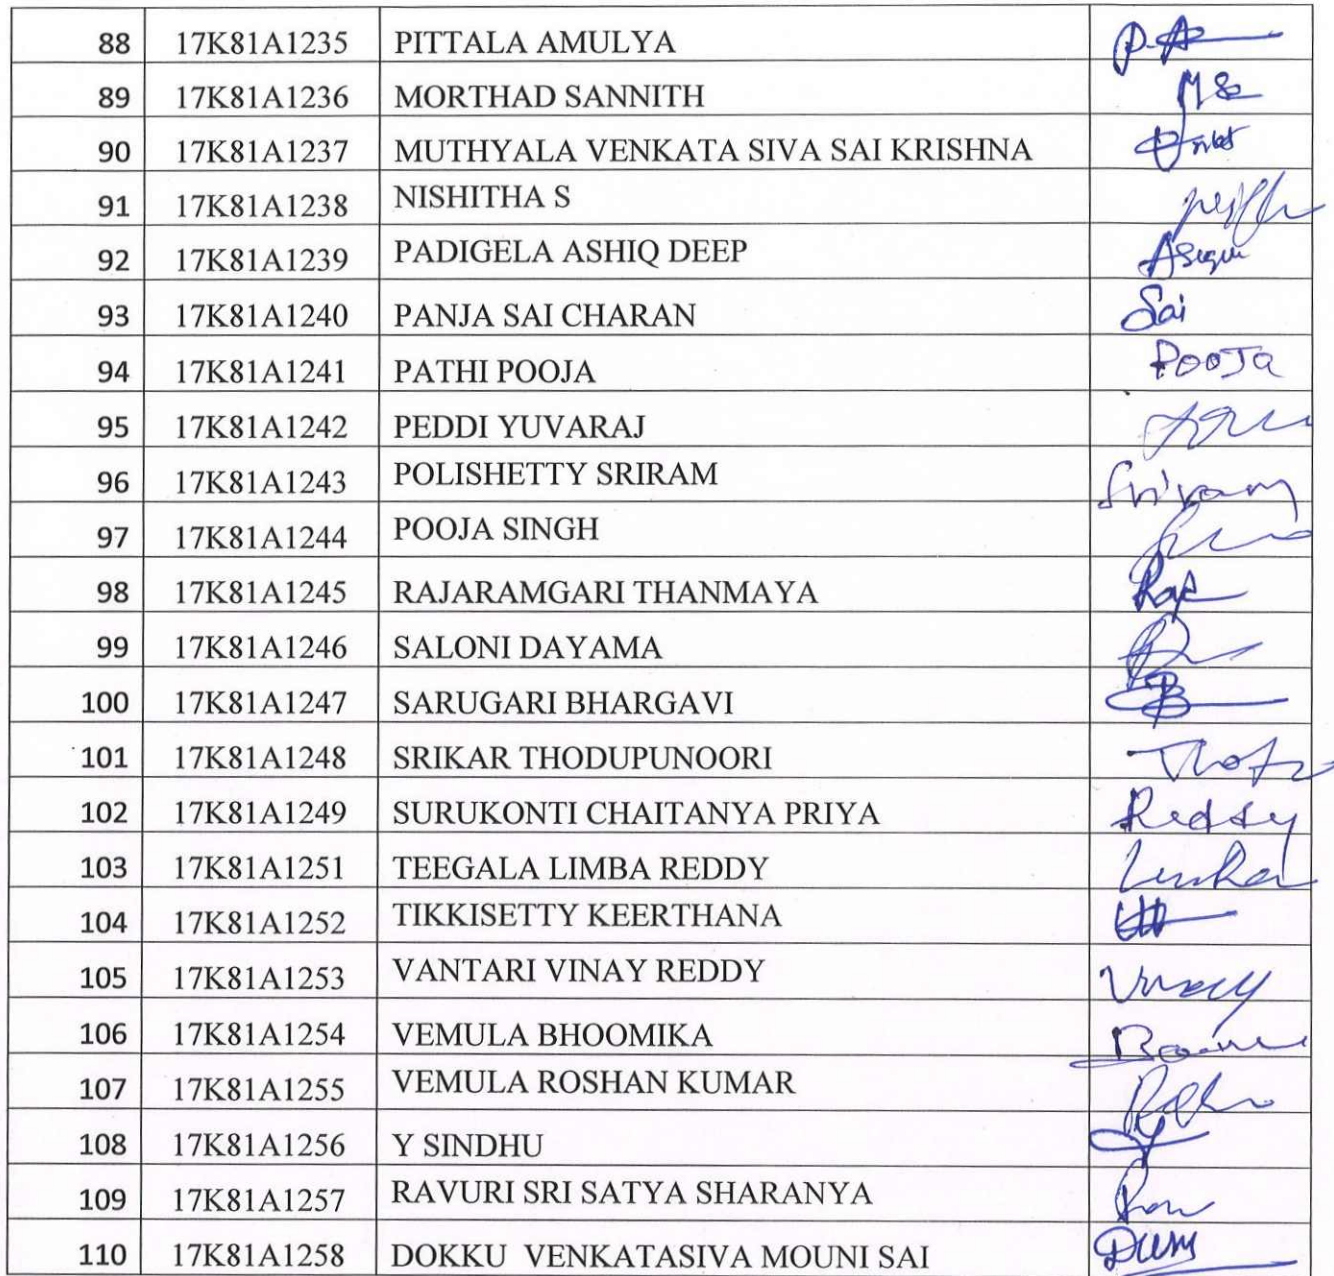 88 17K81A1235 PITTALA AMULYA P.A
89 17K81A1236 MORTHAD SANNITH
90 17K81A1237 MUTHYALA VENKATA SIVA SAI KRISHNA
91 17K81A1238 NISHITHA S
92 17K81A1239 PADIGELA ASHIQ DEEP
93 17K81A1240 PANJA SAI CHARAN Sai
94 17K81A1241 PATHI POOJA POOJa
95 17K81A1242 PEDDI YUVARAJ
96 17K81A1243 POLISHETTY SRIRAM Sriram
97 17K81A1244 POOJA SINGH
98 17K81A1245 RAJARAMGARI THANMAYA
99 17K81A1246 SALONI DAYAMA
100 17K81A1247 SARUGARI BHARGAVI
101 17K81A1248 SRIKAR THODUPUNOORI
102 17K81A1249 SURUKONTI CHAITANYA PRIYA Reddy
103 17K81A1251 TEEGALA LIMBA REDDY
104 17K81A1252 TIKKISETTY KEERTHANA
105 17K81A1253 VANTARI VINAY REDDY
106 17K81A1254 VEMULA BHOOMIKA
107 17K81A1255 VEMULA ROSHAN KUMAR
108 17K81A1256 Y SINDHU
109 17K81A1257 RAVURI SRI SATYA SHARANYA
110 17K81A1258 DOKKU VENKATASIVA MOUNI SAI